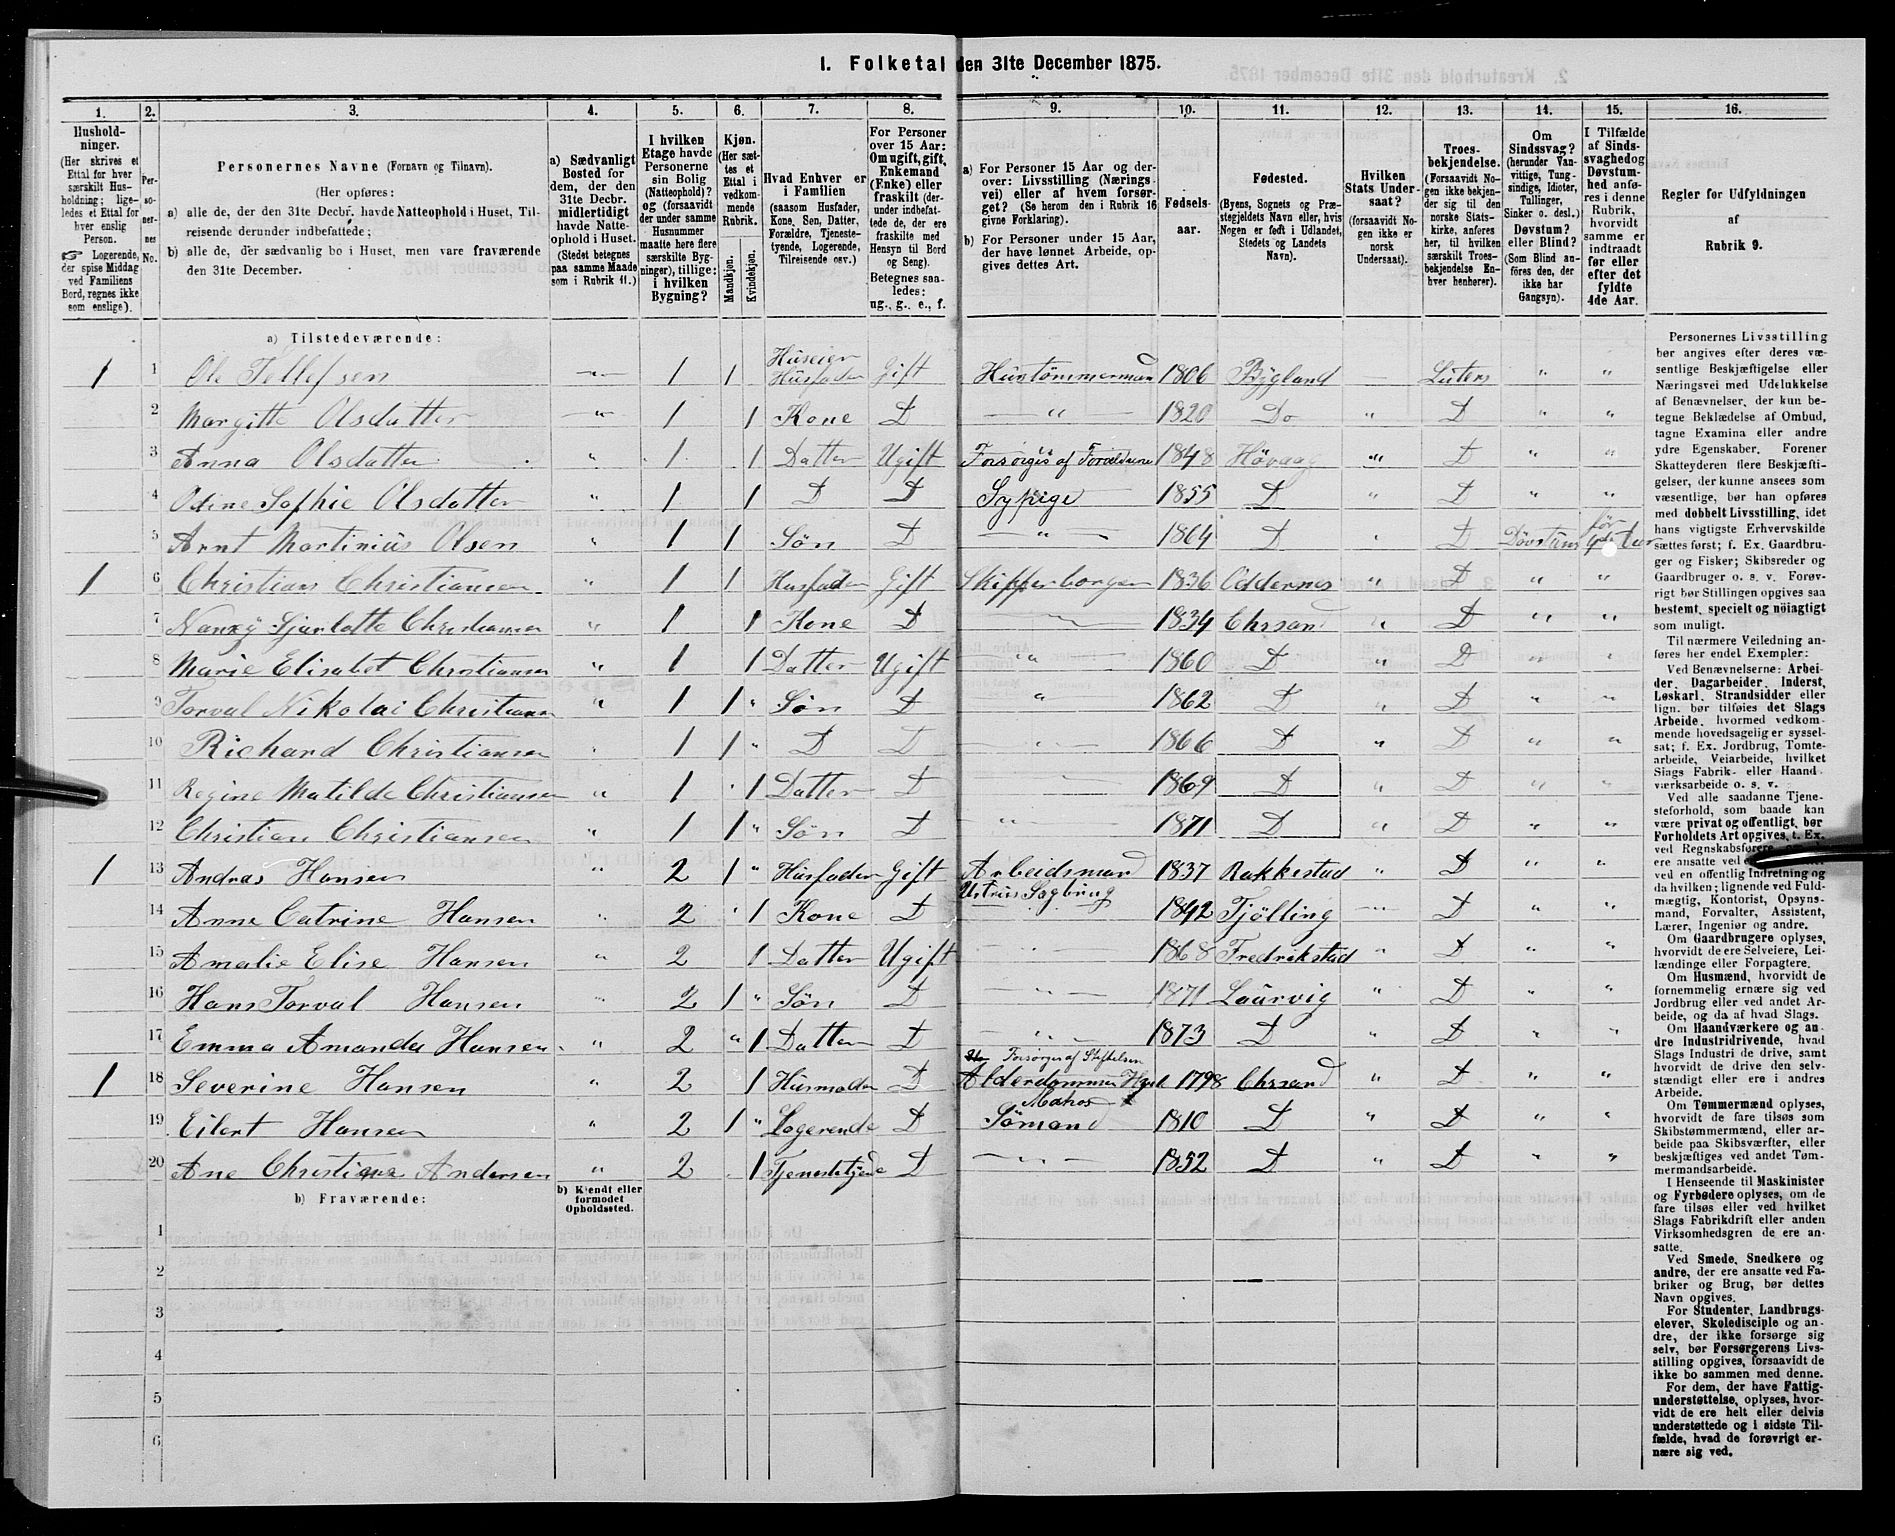 1. Folketal den 31te December 1875.
1. 2. 3. 4. 5. 6. 7. 8. 9. 10. 11. 12. 13. 14. 15. 16.
Hushold-
ninger.
(Her skrives et
Ettal for hver
særskilt Hus-
holdning; lige-
ledes et Ettal for
hver enslig
Person.
☞ Logerende,
der spise Middag
ved Familiens
Bord, regnes ikke
som enslige).
Per-
so-
ner-
nes
No.
Personernes Navne (Fornavn og Tilnavn).
(Her opføres:
a) alle de, der den 31te Decbr. havde Natteophold i Huset, Til-
reisende derunder indbefattede;
b) alle de, der sædvanlig bo i Huset, men vare fraværende
den 31te December.
a) Sædvanligt
Bosted for
dem, der den
31te Decbr.
midlertidigt
havde Natte-
ophold i Huset.
(Stedet betegnes
paa samme Maade
som i Rubrik 11.)
I hvilken
Etage havde
Personerne
sin Bolig
(Natteophold)?
og (forsaavidt
der under samme
Husnummer
maatte høre flere
særskilte Byg-
ninger), tillige:
i hvilken
Bygning?
Kjøn.
(Her sæt-
tes et
Ettal i
vedkom-
mende
Rubrik.
Mandkjøn.
Kvindekjøn.
Hvad Enhver er
i Familien
(saasom Husfader,
Kone, Søn, Datter,
Forældre, Tjeneste-
tyende, Logerende,
Tilreisende osv.)
For Personer
over 15 Aar:
Om ugift, gift,
Enkemand
(Enke) eller
fraskilt (der-
under indbefat-
tede de, der ere
fraskilte med
Hensyn til Bord
og Seng).
Betegnes saa-
ledes:
ug., g., e., f.
a) For Personer 15 Aar og der-
over: Livsstilling (Nærings-
vei) eller af hvem forsør-
get? (Se herom den i Rubrik 16
givne Forklaring).
b) For Personer under 15 Aar,
der have lønnet Arbeide, op-
gives dettes Art.
Fødsels-
aar.
Fødested.
(Byens, Sognets og Præ-
stegjeldets Navn eller, hvis
Nogen er født i Udlandet,
Stedets og Landets
Navn).
Hvilken
Stats Under-
saat?
(forsaavidt No-
gen ikke er
norsk
Undersaat).
Troes-
bekjendelse.
(Forsaavidt No-
gen ikke bekjen-
der sig til den
norske Stats-
kirke, anføres
her, til hvilken
særskilt Troes-
bekjendelse En-
hver henhører).
Om
Sindssvag?
(herunder Van-
vittige, Tung-
sindige, Idioter,
Tullinger,
Sinker o. desl.)
Døvstum?
eller Blind?
(Som Blind an-
føres den, der
ikke har
Gangsyn).
I Tilfælde
af Sinds-
svaghed og
Døvstum-
hed anfø-
res i denne
Rubrik,
hvorvidt
samme er
indtraadt
før eller
efter det
fyldte
4de Aar.
Regler for Udfyldningen
af
Rubrik 9.
a) Tilstedeværende:
Huseier
1 1 Ole Tellefsen " 1 1 Husfader Gift Hustömmermand 1806 Bygland Luters " "
2 Margitte Olsdatter " 1 1 Kone D " 1820 Do " D " "
3 Anna Olsdatter " 1 1 Datter Ugift Forsörges af Foreldrene 1848 Hövaag " D " "
4 Odine Sophie Olsdatter " 1 1 D D Sypige 1855 D " D " "
för
5 Arnt Martinius Olsen " 1 1 Sön D " 1864 D " D Dövstum 4de Aar
1 6 Christian Christiansen " 1 1 Husfader Gift Skipperborger 1836 Oddernes " D " "
7 Nanzy Sjarlotte Christiansen " 1 1 Kone D 1834 Chrsand " D " "
8 Marie Elisabet Christiansen " 1 1 Datter Ugift " 1860 D " D " "
9 Torval Nikolai Christiansen " 1 1 " Sön D " 1862 D " D " "
10 Richard Christiansen " 1 1 " D D " 1866 D " D " "
11 Regine Matilde Christiansen " 1 " 1 Datter D " 1869 D " D " "
12 Christian Christiansen " 1 1 " Sön D " 1871 D " D " "
1 13 Andras Hansen 2 1 " Husfader Gift Arbeidsmand 1837 Rakkestad " D " "
Sagbrug
14 Anne Catrine Hansen " 2 " 1 Kone D 1842 Tjölling " D " "
15 Amalie Elise Hansen " 2 1 Datter Ugift " 1868 Fredrikstad " D " "
16 Hans Torval Hansen " 2 1 " Sön D " 1871 Laurvig " D " "
17 Emma Amanda Hansen " 2 " 1 Datter D " 1873 D " D " "
Forsörges af Stiftelsen
1 18 Severine Hansen " 2 1 Husmoder D Alderdommen 1798 Chrsand " D " "
19 Eilert Hansen " 2 1 " Logerende D Sömand 1810 D " D " "
20 Ane Christiane Andersen " 2 1 Tjenestetyende D " 1852 D " D " "
b) Fraværende:
b) Kjendt eller
formodet
Opholdssted.
1
2
3
4
5
6
Personernes Livsstilling
bør angives efter deres væ-
sentlige Beskjæftigelse eller
Næringsvei med Udelukkelse
af Benævnelser, der kun be-
tegne Beklædelse af Ombud,
tagne Examina eller andre
ydre Egenskaber. Forener
Skatteyderen flere Beskjæfti-
gelser, der kunne ansees som
væsentlige, bør han opføres
med dobbelt Livsstilling, idet
hans vigtigste Erhvervskilde
sættes først; f. Ex. Gaardbru-
ger og Fisker; Skibsreder og
Gaardbruger o. s. v. Forøv-
rigt bør Stillingen opgives saa
bestemt, specielt og nöiagtigt
som muligt.
Til nærmere Veiledning an-
føres her endel Exempler:
Ved Benævnelserne: Arbei-
der, Dagarbeider, Inderst,
Løskarl, Strandsidder eller
lign. bør tilføies det Slags
Arbeide, hvormed vedkom-
mende hovedsagelig er syssel-
sat; f. Ex. Jordbrug, Tomte-
arbeide, Veiarbeide, hvilket
Slags Fabrik- eller Haand-
værksarbeide o. s. v.
Ved alle saadanne Tjene-
steforhold, som baade kan
være privat og offentligt, bør
Forholdets Art opgives, t. Ex.
ved Regnskabsførere,
ere ansatte ved
ved en offentlig Indretning og
da hvilken; lignende ved Fuld-
mægtig, Kontorist, Opsyns-
mand, Forvalter, Assistent,
Lærer, Ingeniør og andre.
Om Gaardbrugere oplyses,
hvorvidt de ere Selveiere, Lei-
lændinge eller Forpagtere.
Om Husmænd, hvorvidt de
fornemmelig ernære sig ved
Jordbrug eller ved andet Ar-
beide, og da af hvad Slags.
Om Haandværkere og an-
dre Industridrivende, hvad
Slags Industri de drive, samt
hvorvidt de drive den selv-
stændigt eller ere i andres
Arbeide.
Om Tømmermænd oplyses,
hvorvidt de fare tilsøs som
Skibstømmermænd, eller ar-
beide paa Skibsværfter, eller
beskjæftiges ved andet Tøm-
mermandsarbeide.
I Henseende til Maskinister
og Fyrbødere oplyses, om de
fare tilsøs eller ved hvilket
Slags Fabrikdrift eller anden
Virksomhedsgren de ere an-
satte.
Ved Smede, Snedkere og
andre, der ere ansatte ved Fa-
briker og Brug, bør dettes
Navn opgives.
For Studenter, Landbrugs-
elever, Skoledisciple og an-
dre, der ikke forsørge sig
selv, bør Forsørgerens Livs-
stilling opgives, forsaavidt de
ikke bo sammen med denne.
For dem, der have Fattig-
understøttelse, oplyses, hvor-
vidt de ere helt eller delvis
understøttede og i sidste Til-
fælde, hvad de forøvrigt er-
nære sig ved.